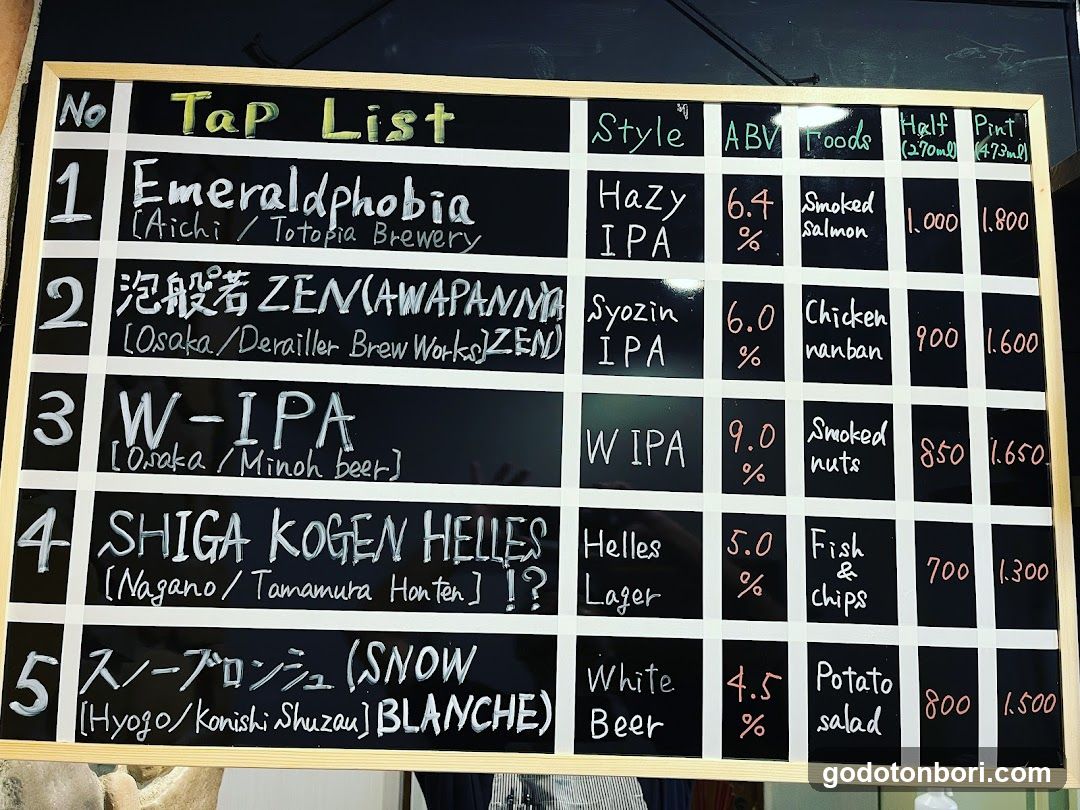 No Tap List Style ABV Foods Half Pint
(270ml) (473ml)
1 Emeraldphobia Hazy 6.4 Smoked 1.000 1.800
[Aichi / Totopia Brewery IPA % salmon
2 泡般若 ZEN (AWAPANNYA Syozin 6.0 Chicken 900 1.600
[Osaka/Derailler Brew Works] ZEN) IPA % nanban
3 W-IPA W IPA 9.0 Smoked 850 1.650
[Osaka / Minoh beer] % nuts
4 SHIGA KOGEN HELLES Helles 5.0 Fish 700 1.300
&
[Nagano / Tamamura Honten] !? Lager % chips
5 スノーブロンシュ (SNOW White 4.5 Potato 800 1.500
[Hyogo/Konishi Shuzau] BLANCHE) Beer % salad
godotonbori.com